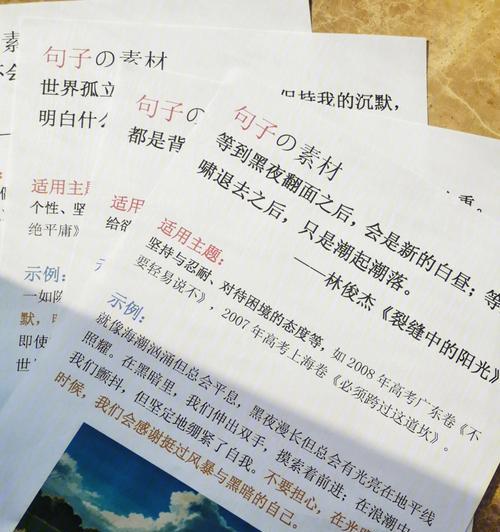 素
不会
句子の素材
世界孤立
保持我的沉默,
明白什么
适用主题
个性、坚
绝平庸》
示例:
一如陈
默,
即使
世
句子の素材
都是背
适用主
给欲
句子の素材
等到黑夜翻面之后,会是新的白昼;等
啸退去之后,只是潮起潮落。
——林俊杰《裂缝中的阳光》
适用主题:
坚持与忍耐、对待困境的态度等,如2008年高考广东卷《不
要轻易说不》,2007年高考上海卷《必须跨过这道坎》。
示例:
就像海潮汹涌但总会平息,黑夜漫长但总会有光亮在地平线
照耀。在黑暗里,我们伸出双手,摸索着前进;在浪潮
我们颤抖,但坚定地绷紧了自我。不要担心,在光
时候,我们会感谢挺过风暴与黑暗的自己。